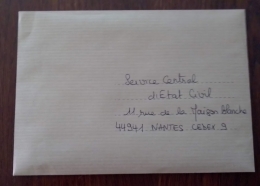 Service Central
d'Etat Civil
11 rue de la Maison Blanche
44941 NANTES CEDEX 9